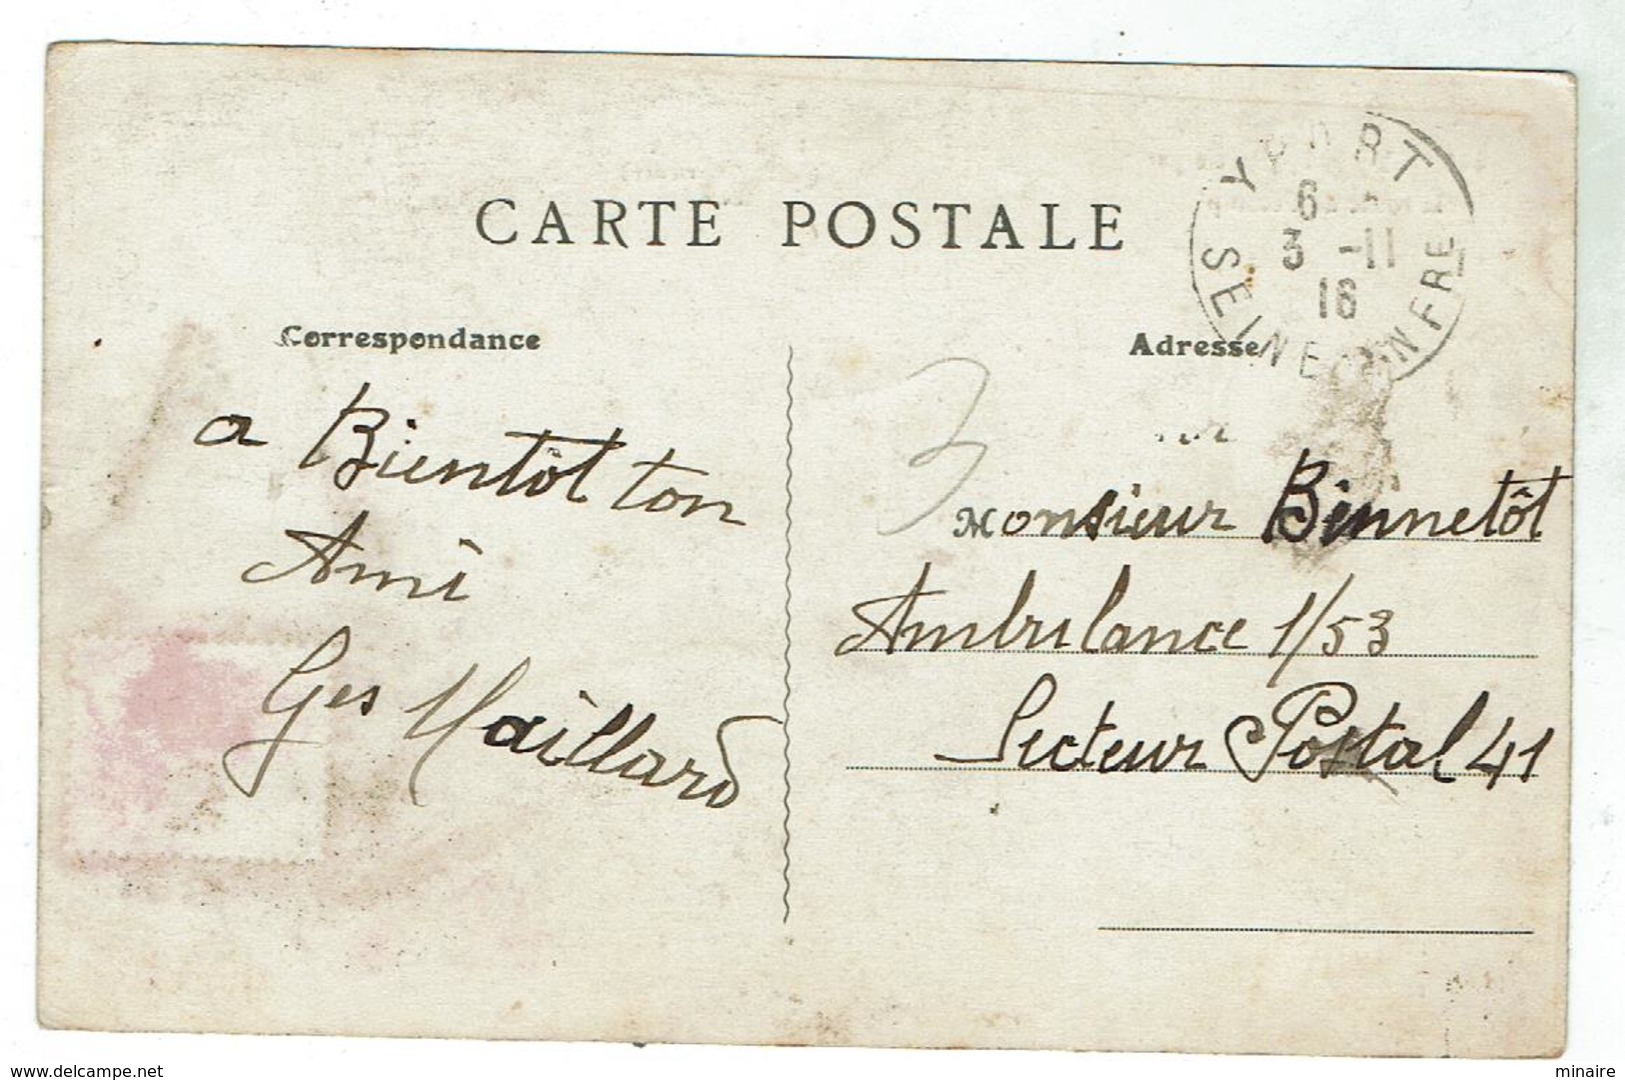 CARTE POSTALE
YPORT
6
3 -11
16
SEINE INFRE
Correspondance
Adresse
a Bientôt ton
Ami
Ges Maillard
3
Monsieur Binnetôt
Ambulance 1/53
Secteur Postal 41
www.delcampe.net
minaire